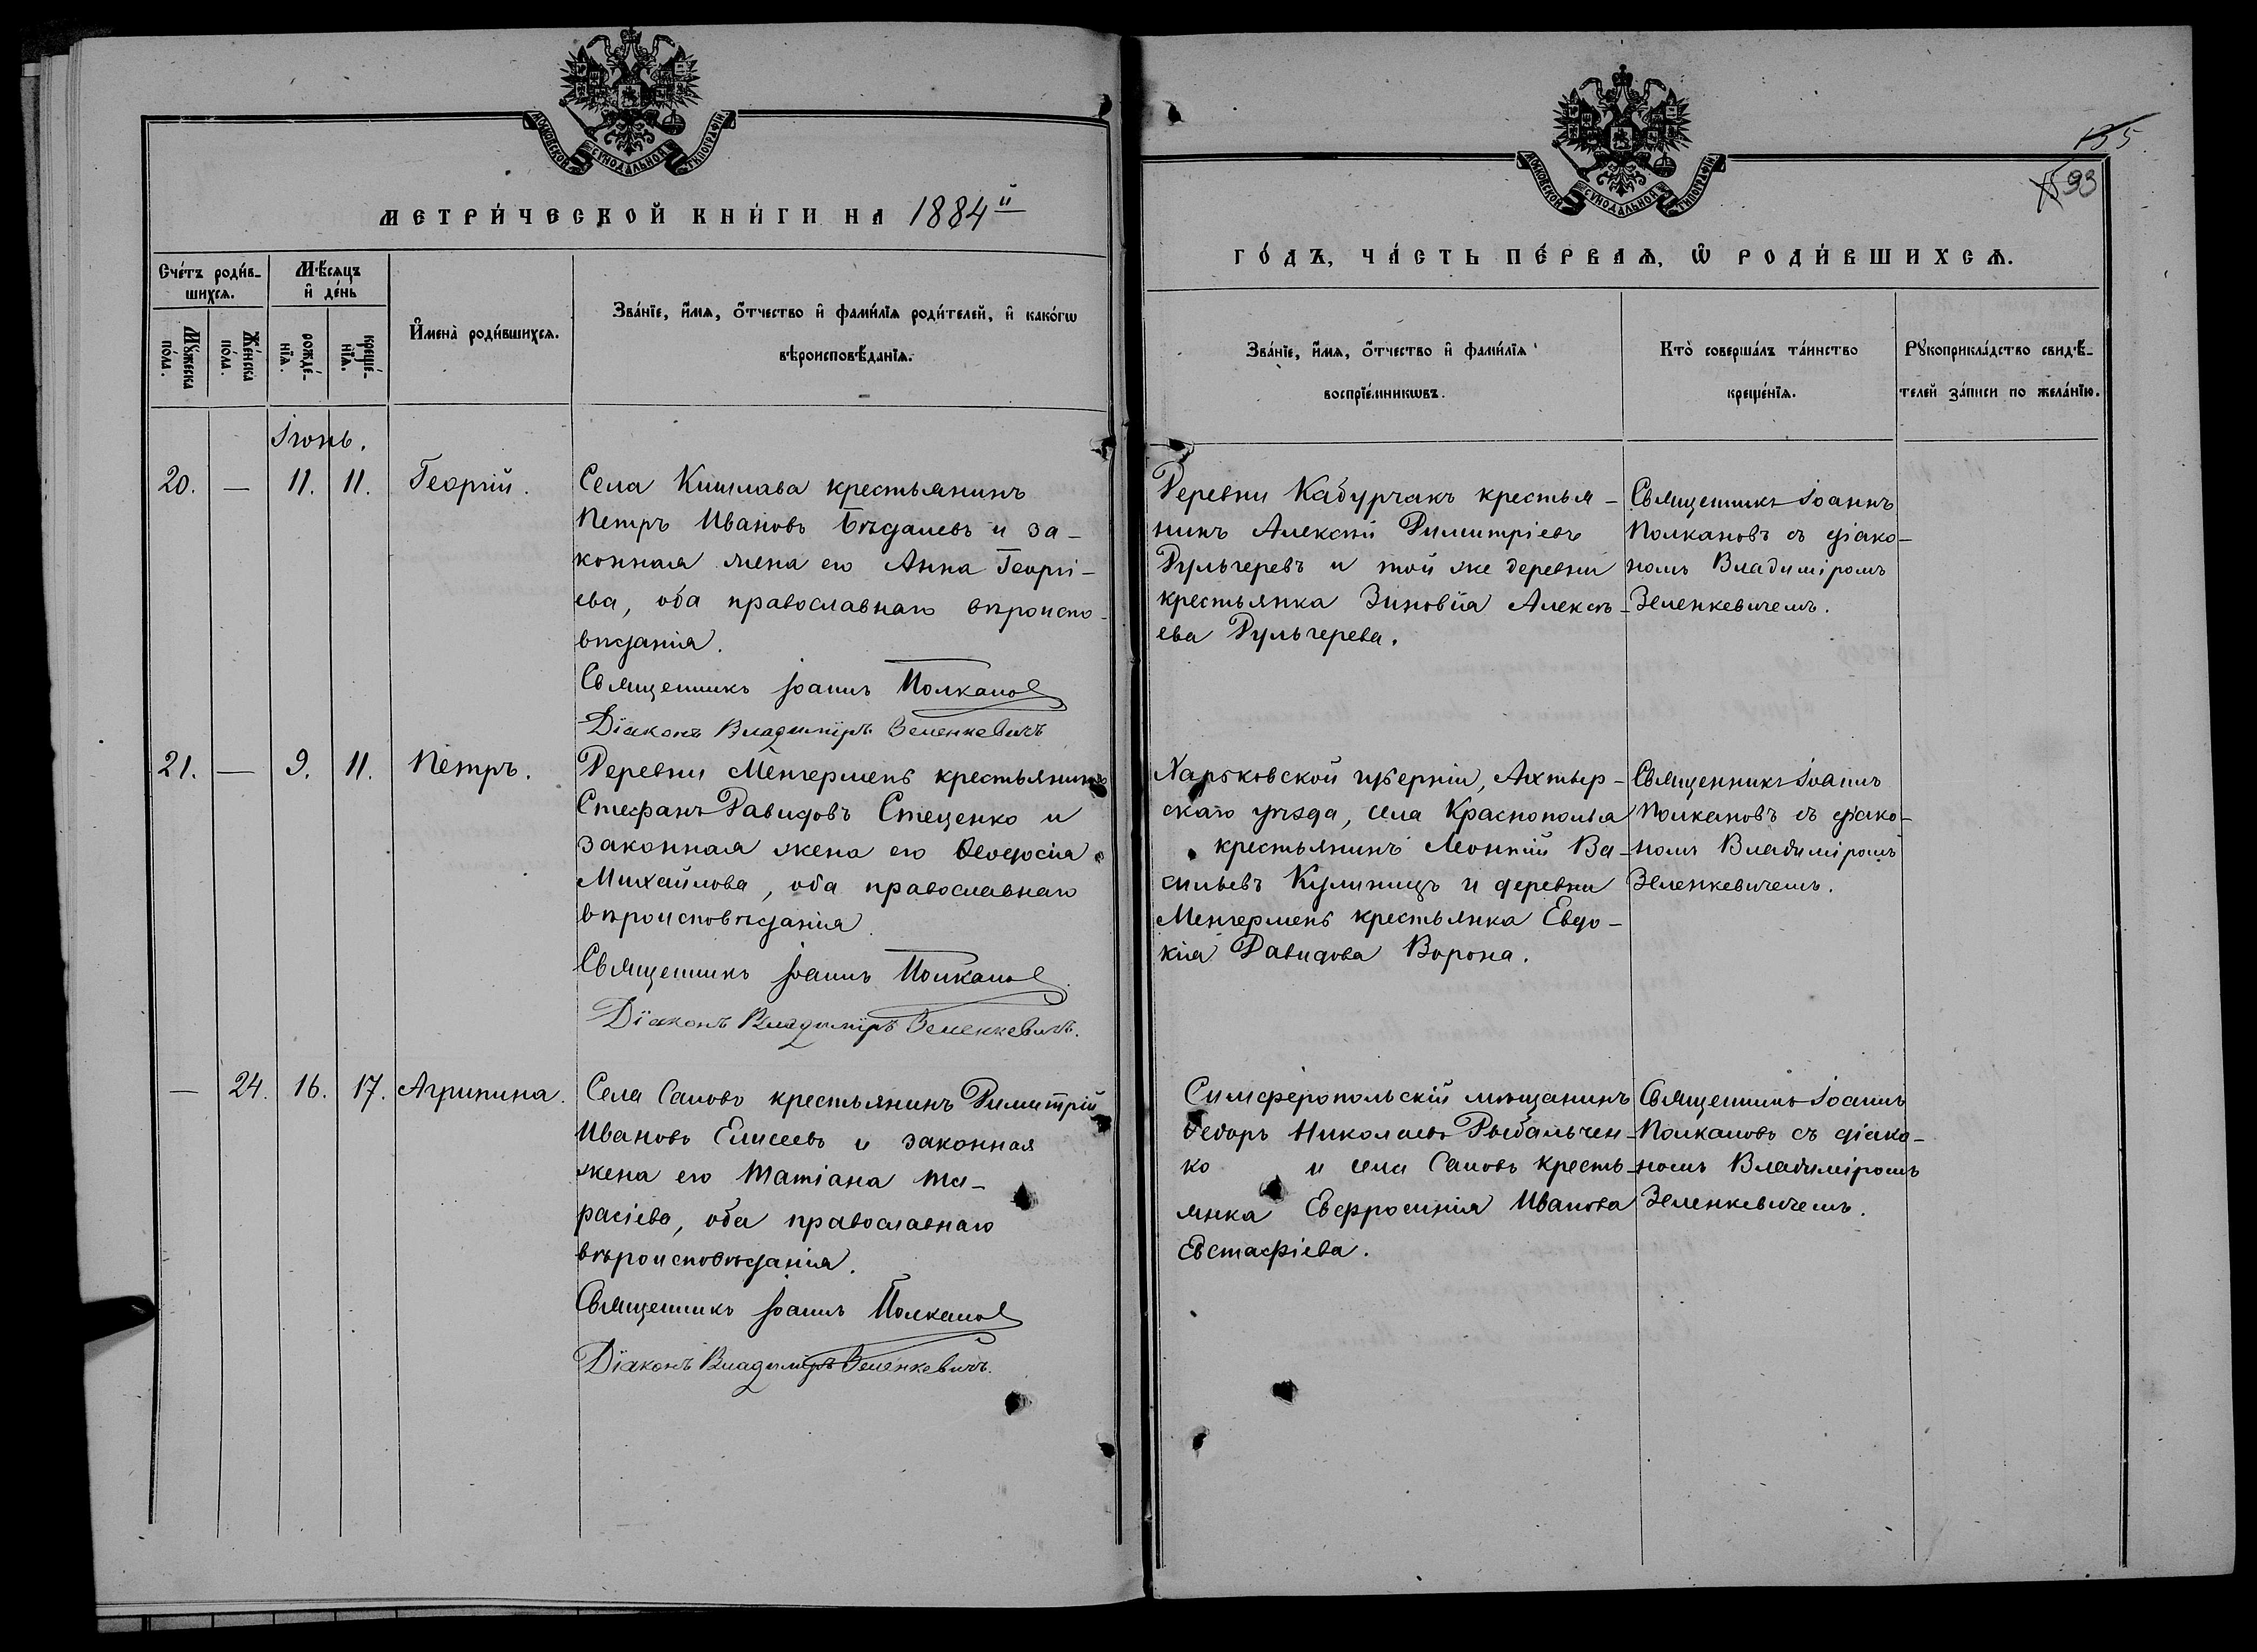 МОСКОВСКОЙ СѴНОДАЛЬНОЙ ТИПОГРАФІИ
МЕТРИ́ЧЕСКОЙ КНИ́ГИ НА 1884й
Сче́тъ роди́в-
шихсѧ.
Мѣ́сѧцъ
и҆ де́нь
И҆мена̀ роди́вшихсѧ.
Зва́нїе, и҆́мѧ, ѻ҆́тчество и҆ фами́лїѧ роди́телей, и҆ како́гѡ
вѣроисповѣ́данїѧ.
Мꙋ́жеска
по́ла.
Же́нска
по́ла.
рожде́-
нїѧ.
креще́-
нїѧ.
Іюнь.
20. — 11. 11. Георгій.
Села Кишлава крестьянинъ
Петръ Ивановъ Бѣдалевъ и за-
конная жена его Анна Георгі-
ева, оба православнаго вѣроиспо-
вѣданія.
Священникъ Іоаннъ Полканов
Діаконъ Владиміръ Зеленкевичъ
21. — 9. 11. Петръ.
Деревни Менгерменъ крестьянинъ
Стефанъ Давидовъ Стеценко и
законная жена его Ѳеодосія
Михайлова, оба православнаго
вѣроисповѣданія.
Священникъ Іоаннъ Полканов
Діаконъ Владиміръ Зеленкевичъ.
— 24. 16. 17. Агрипина.
Села Салово крестьянинъ Димитрій
Ивановъ Елисеевъ и законная
жена его Татіана Та-
расіева, оба православнаго
вѣроисповѣданія.
Священникъ Іоаннъ Полканов
Діаконъ Владиміръ Зеленкевичъ.
МОСКОВСКОЙ СѴНОДАЛЬНОЙ ТИПОГРАФІИ
155.
93
ГО́ДЪ, ЧА́СТЬ ПЕ́РВАѦ, Ѡ҆ РОДИ́ВШИХСѦ.
Зва́нїе, и҆́мѧ, ѻ҆́тчество и҆ фами́лїѧ
воспрїе́мникѡвъ.
Кто̀ соверша́лъ та́инство
креще́нїѧ.
Рꙋкоприкла́дство свидѣ́-
телей за́писи по жела́нїю.
Деревни Кабурчакъ крестья-
нинъ Алексѣй Димитріевъ
Дульгеревъ и той же деревни
крестьянка Зиновія Алексѣ-
ева Дульгерева.
Священникъ Іоаннъ
Полкановъ съ діако-
номъ Владиміромъ
Зеленкевичемъ.
Харьковской губерніи, Ахтыр-
скаго уѣзда, села Краснополья
крестьянинъ Леонтій Ва-
сильевъ Кулиницъ и деревни
Менгерменъ крестьянка Евдо-
кія Давидова Ворона.
Священникъ Іоаннъ
Полкановъ съ діако-
номъ Владиміромъ
Зеленкевичемъ.
Симферопольскій мѣщанинъ
Ѳедоръ Николаевъ Рыбальчен-
ко и села Саловъ кресть-
янка Евфросинія Иванова
Евстафіева.
Священникъ Іоаннъ
Полкановъ съ діако-
номъ Владиміромъ
Зеленкевичемъ.